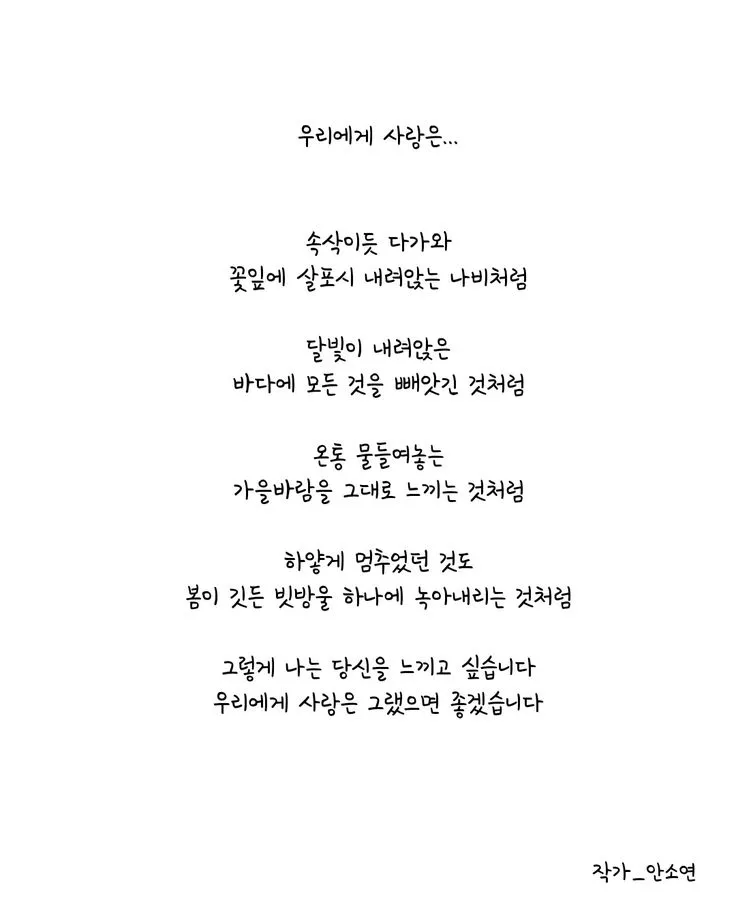 우리에게 사랑은...
속삭이듯 다가와
꽃잎에 살포시 내려앉는 나비처럼
달빛이 내려앉은
바다에 모든 것을 빼앗긴 것처럼
온통 물들여놓는
가을바람을 그대로 느끼는 것처럼
하얗게 멈추었던 것도
봄이 깃든 빗방울 하나에 녹아내리는 것처럼
그렇게 나는 당신을 느끼고 싶습니다
우리에게 사랑은 그랬으면 좋겠습니다
작가_안소연